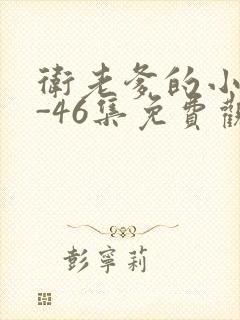 衛老爹的小
-46集免費觀
彭寧莉